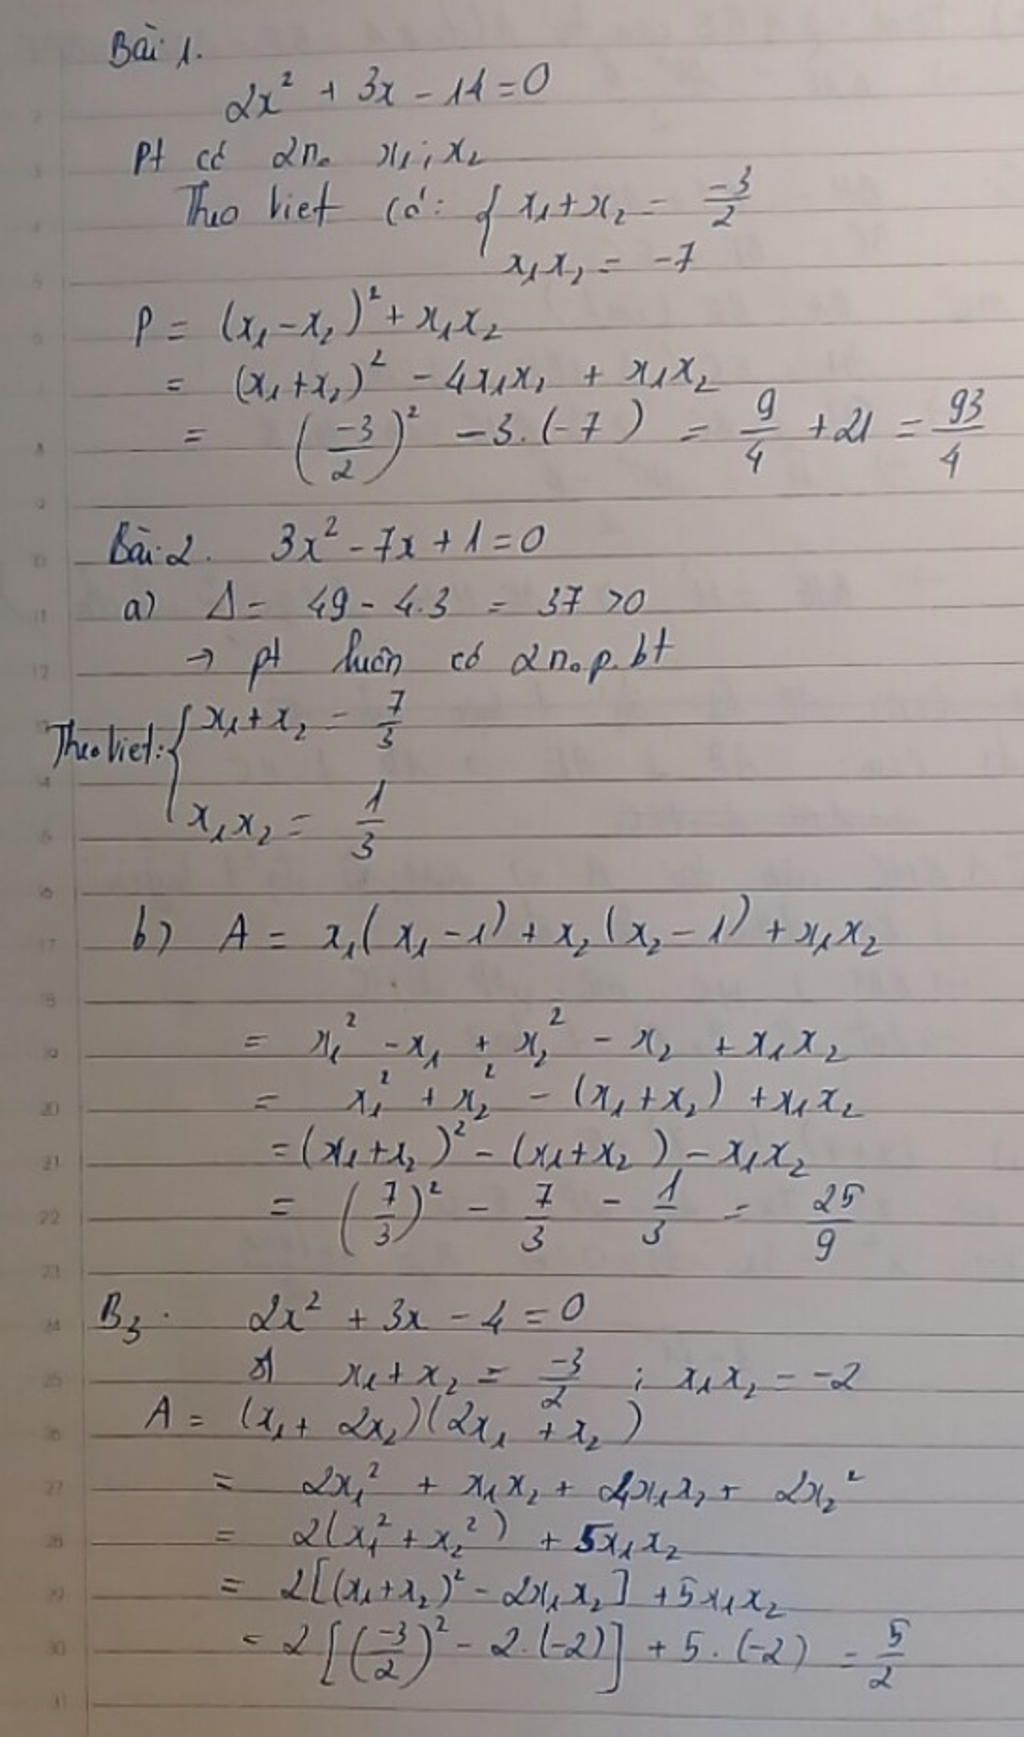 Bài 1.
2x² + 3x - 14 = 0
Pt có 2n₀ x₁; x₂
Theo Viet có: { x₁ + x₂ = -3/2
x₁x₂ = -7
P = (x₁ - x₂)² + x₁x₂
= (x₁ + x₂)² - 4x₁x₂ + x₁x₂
= (-3/2)² - 3.(-7) = 9/4 + 21 = 93/4
Bài 2. 3x² - 7x + 1 = 0
a) Δ = 49 - 4.3 = 37 > 0
→ pt luôn có 2n₀ p.bt
Theo Viet: { x₁ + x₂ = 7/3
x₁x₂ = 1/3
b) A = x₁(x₁ - 1) + x₂(x₂ - 1) + x₁x₂
= x₁² - x₁ + x₂² - x₂ + x₁x₂
= x₁² + x₂² - (x₁ + x₂) + x₁x₂
= (x₁ + x₂)² - (x₁ + x₂) - x₁x₂
= (7/3)² - 7/3 - 1/3 = 25/9
B3. 2x² + 3x - 4 = 0
x₁ + x₂ = -3/2 ; x₁x₂ = -2
A = (x₁ + 2x₂)(2x₁ + x₂)
= 2x₁² + x₁x₂ + 4x₁x₂ + 2x₂²
= 2(x₁² + x₂²) + 5x₁x₂
= 2[(x₁ + x₂)² - 2x₁x₂] + 5x₁x₂
= 2[(-3/2)² - 2.(-2)] + 5.(-2) = 5/2